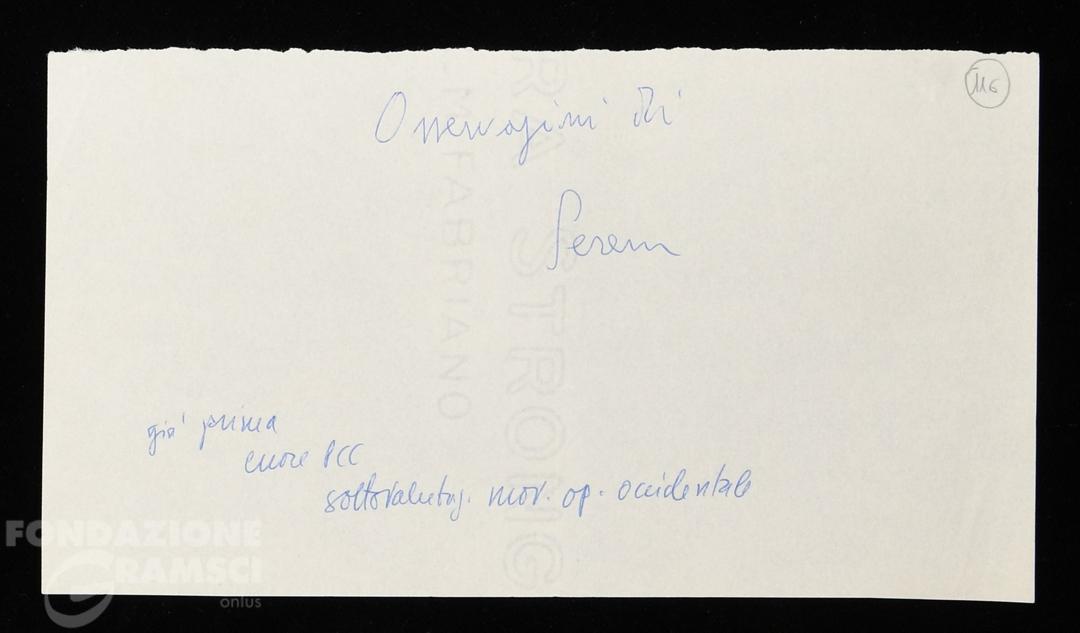 116
Osservazioni di
Sereni
già prima
errore PCC
sottovalutaz. mov. op. occidentale
RA STRONG
- M FABRIANO
FONDAZIONE
GRAMSCI
onlus